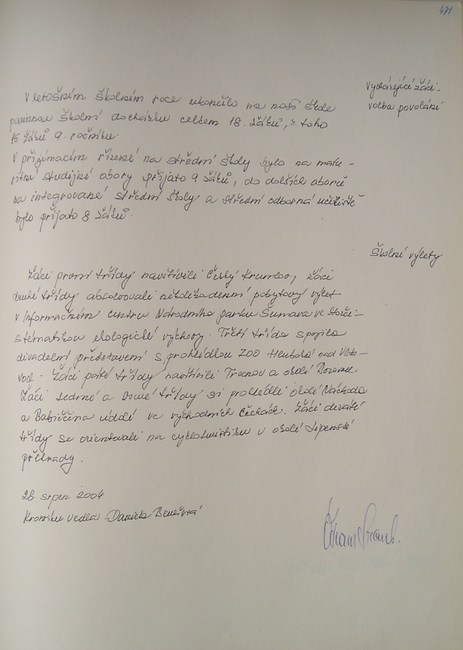 471
Vycházející žáci -
volba povolání
V letošním školním roce ukončilo na naší škole
povinnou školní docházku celkem 18 žáků, z toho
15 žáků 9. ročníku.
V přijímacím řízení na střední školy bylo na matu-
ritní studijní obory přijato 9 žáků, do dalších oborů
na integrované střední školy a střední odborná učiliště
bylo přijato 8 žáků.
Školní výlety
Žáci první třídy navštívili Český Krumlov, žáci
druhé třídy absolvovali několikadenní pobytový výlet
v Informačním centru Národního parku Šumava ve Stožci
s tématikou ekologické výchovy. Třetí třída spojila
divadelní představení s prohlídkou ZOO Hluboká nad Vlta-
vou. Žáci páté třídy navštívili Trocnov a okolí Borovan.
Žáci sedmé a osmé třídy si prohlédli okolí Náchoda
a Babiččina údolí ve východních Čechách. Žáci deváté
třídy se orientovali na cykloturistiku v okolí Lipenské
přehrady.
28. srpen 2004
Kroniku vedla Daniela Benešová